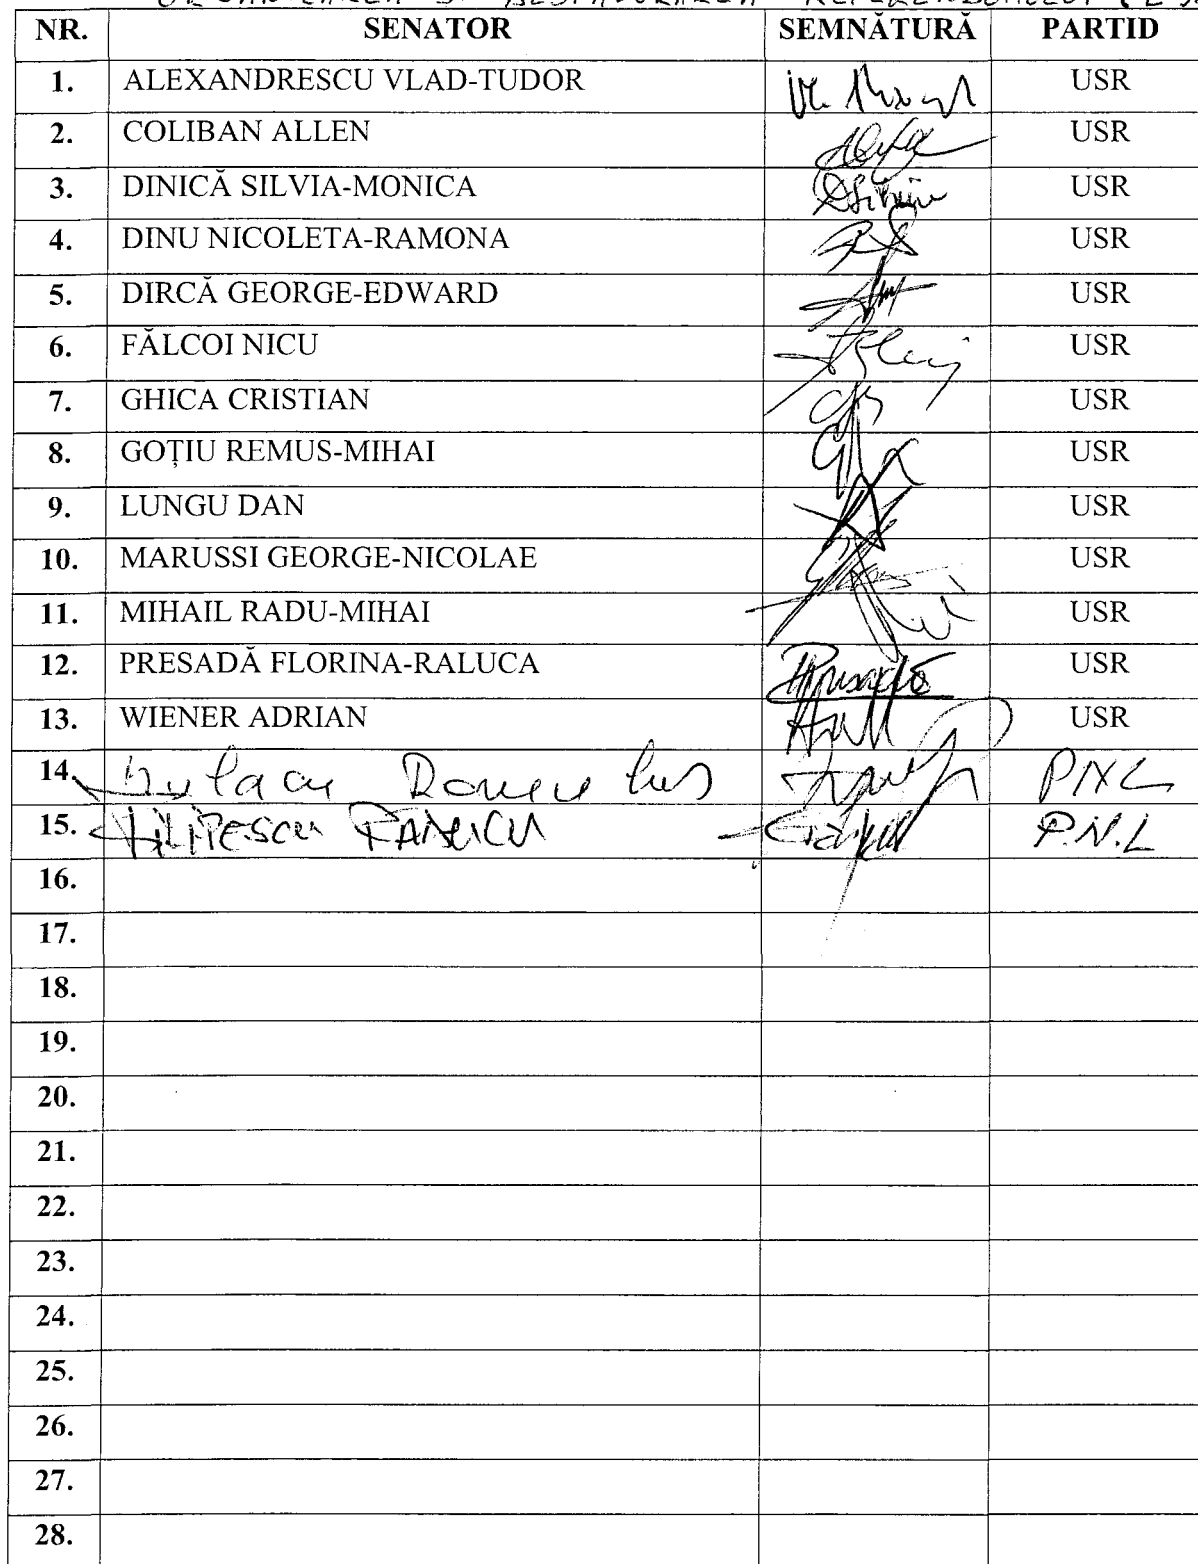 ORGANIZAREA ȘI DESFĂȘURAREA REFERENDUMULUI
NR. SENATOR SEMNĂTURĂ PARTID
1. ALEXANDRESCU VLAD-TUDOR USR
2. COLIBAN ALLEN USR
3. DINICĂ SILVIA-MONICA USR
4. DINU NICOLETA-RAMONA USR
5. DIRCĂ GEORGE-EDWARD USR
6. FĂLCOI NICU USR
7. GHICA CRISTIAN USR
8. GOȚIU REMUS-MIHAI USR
9. LUNGU DAN USR
10. MARUSSI GEORGE-NICOLAE USR
11. MIHAIL RADU-MIHAI USR
12. PRESADĂ FLORINA-RALUCA USR
13. WIENER ADRIAN USR
14. PNL
15. P.N.L
16.
17.
18.
19.
20.
21.
22.
23.
24.
25.
26.
27.
28.